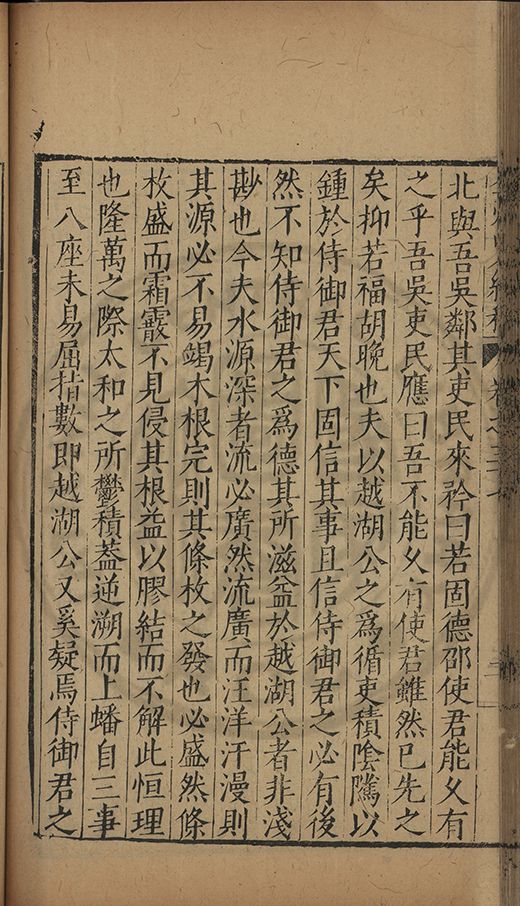 北與吾吳鄰其吏民來矜曰若固德邵使君能乆有
之乎吾吳吏民應曰吾不能乆有使君雖然已先之
矣抑若福胡晚也夫以越湖公之爲循吏積陰隲以
鍾於侍御君天下固信其事且信侍御君之必有後
然不知侍御君之爲德其所滋益於越湖公者非淺
尠也今夫水源深者流必廣然流廣而汪洋汗漫則
其源必不易竭木根完則其條枚之發也必盛然條
枚盛而霜霰不見侵其根益以膠結而不解此恒理
也隆萬之際太和之所鬱積蓋逆溯而上蟠自三事
至八座未易屈指數即越湖公又奚疑焉侍御君之